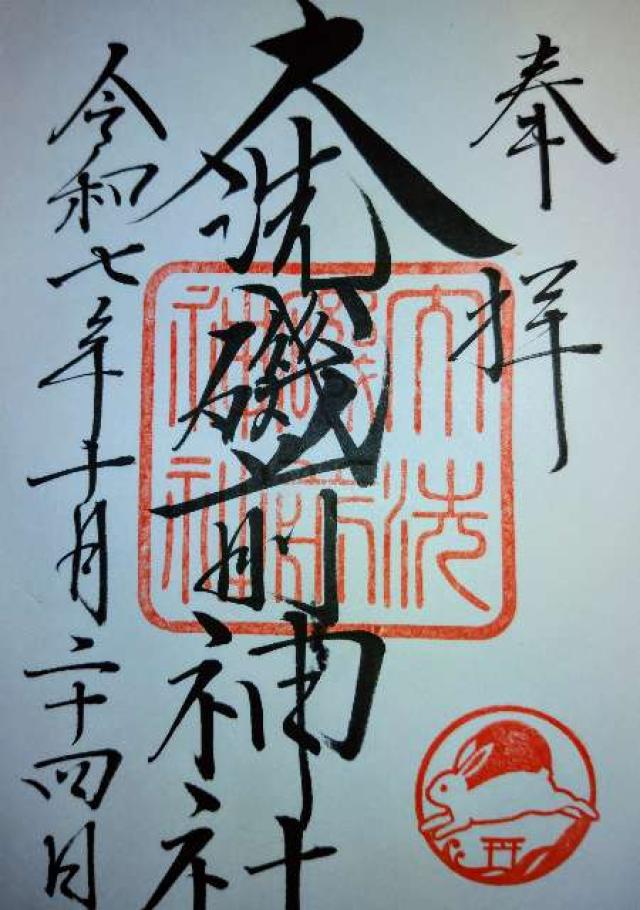 奉拝
大洗磯前神社
令和七年十月二十四日
大洗
磯前
神社